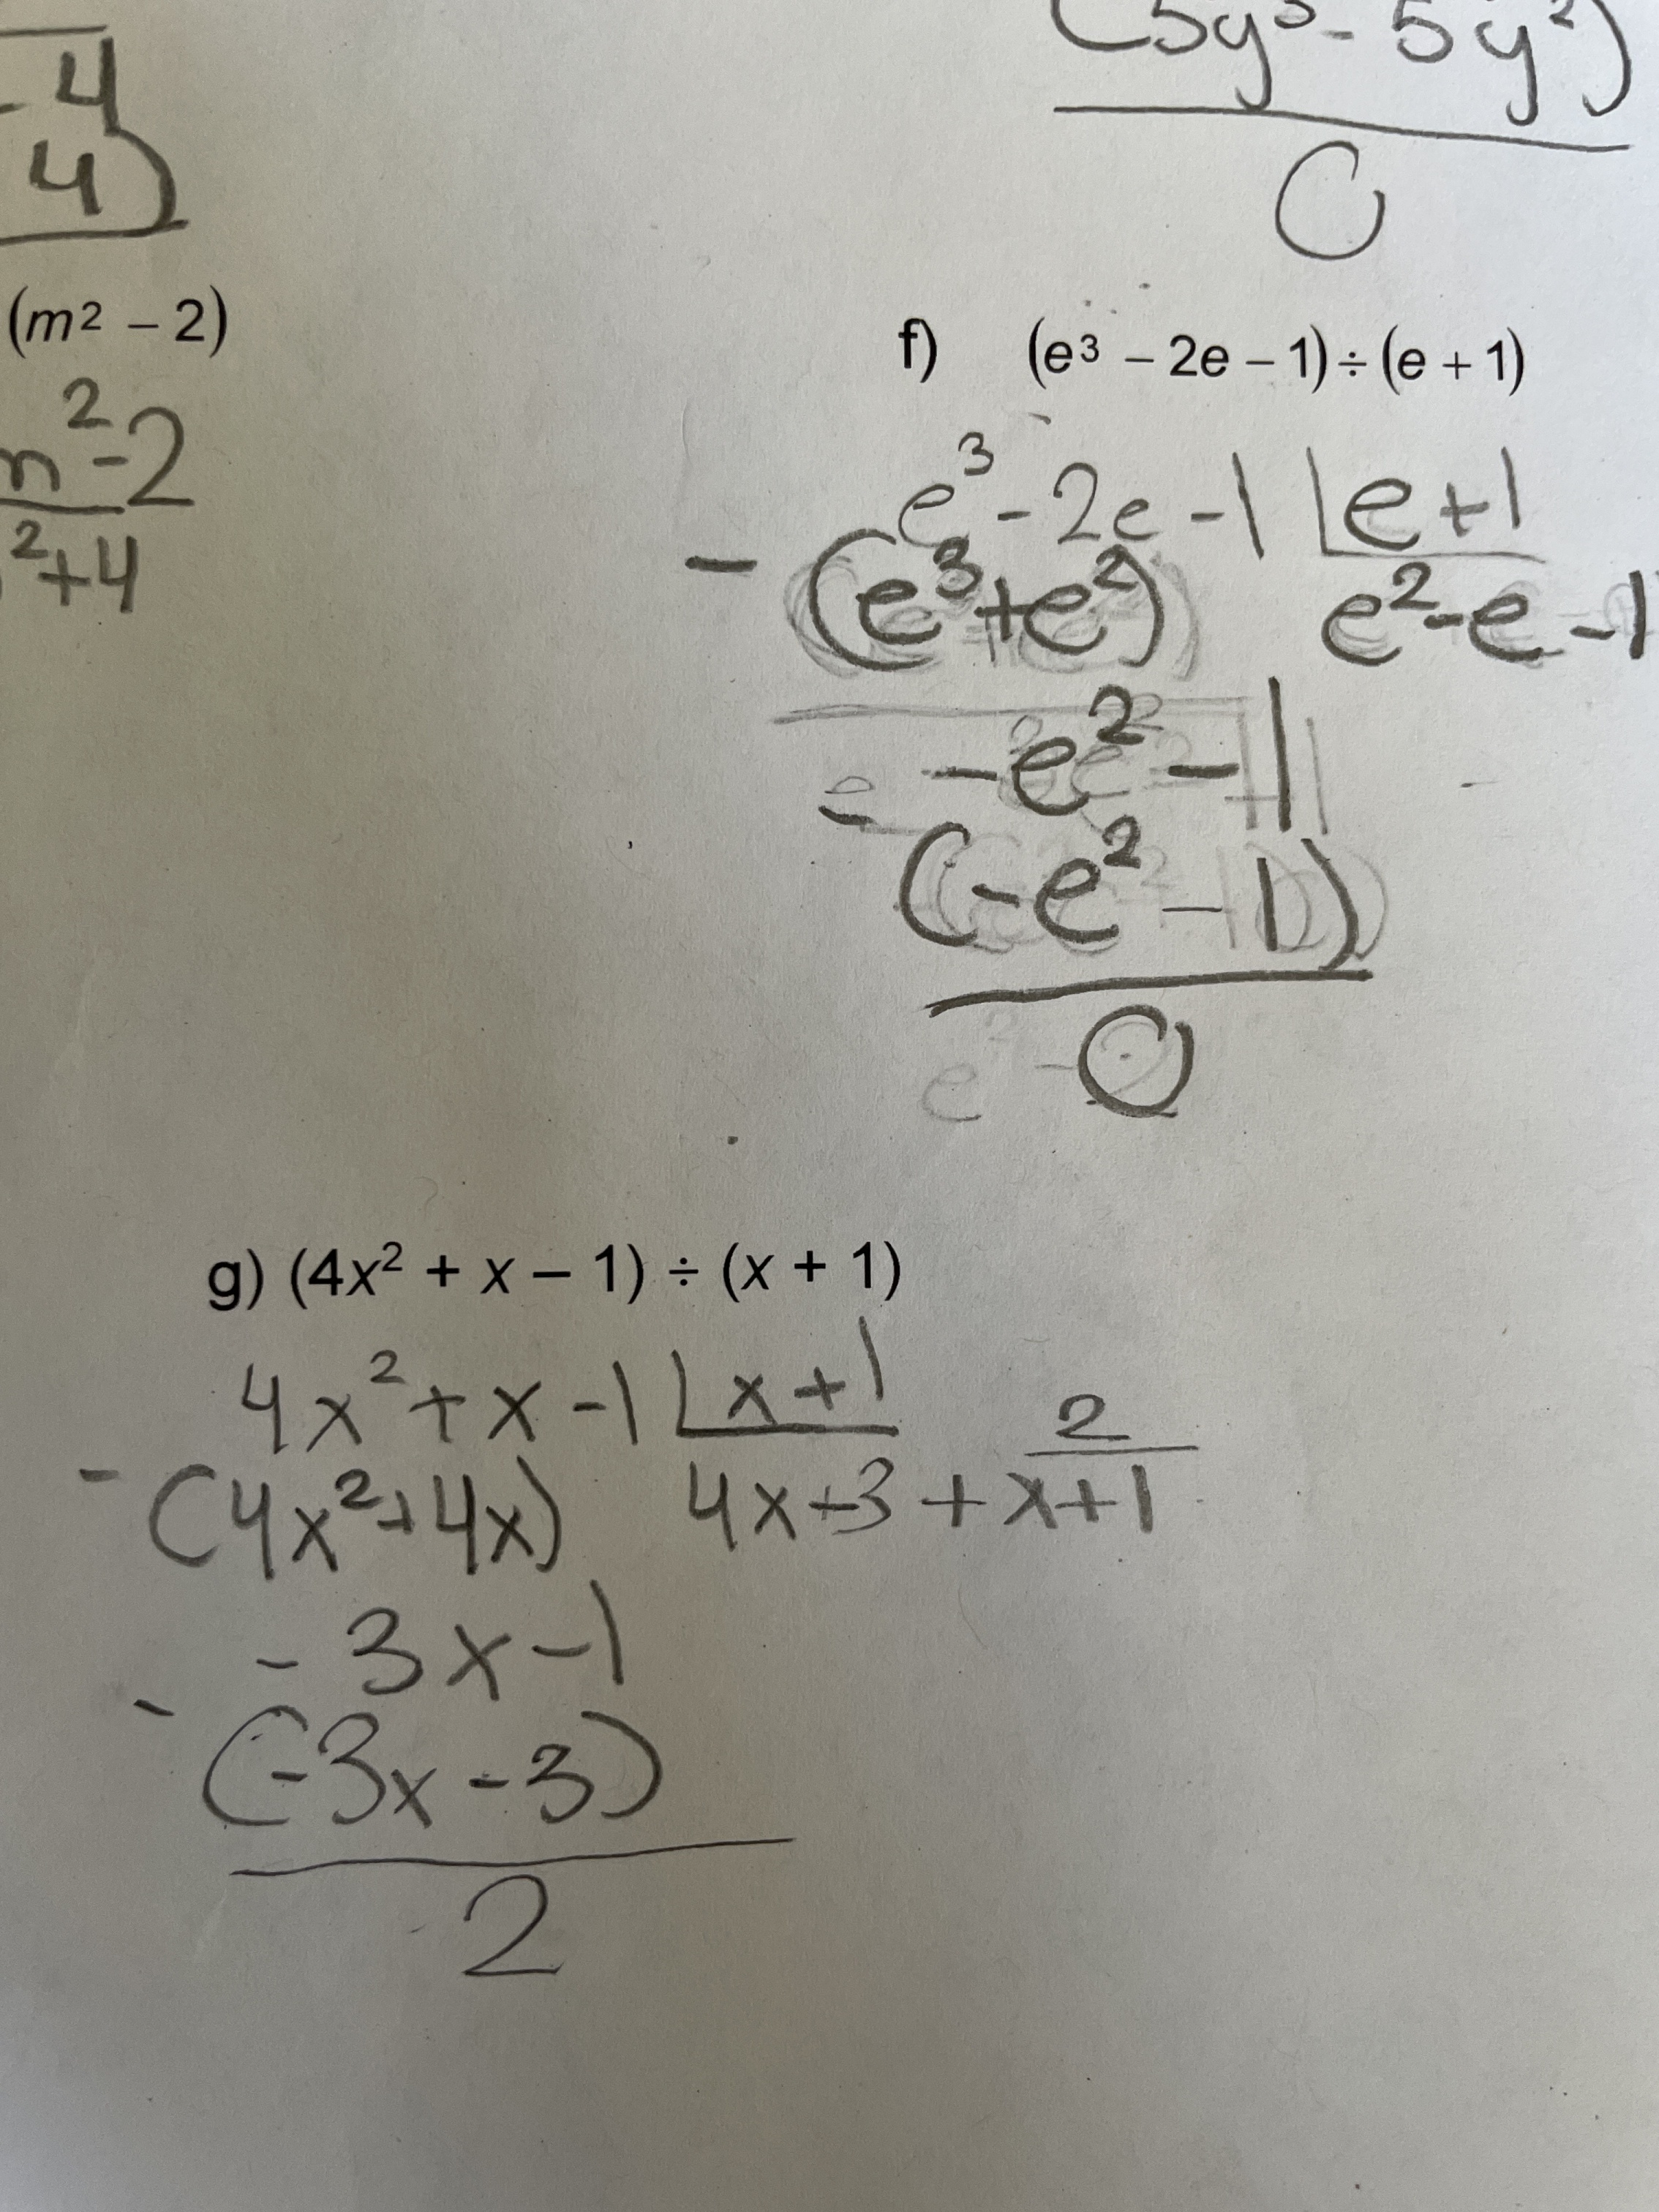 - 4
4)
(5y³ - 5y²)
0
(m² - 2)
m² - 2
² + 4
f) (e³ - 2e - 1) ÷ (e + 1)
e³ - 2e - 1 | e + 1
- (e³ + e²) e² - e - 1
- e² - 1
- (- e² - 1)
0
g) (4x² + x - 1) ÷ (x + 1)
4x² + x - 1 | x + 1 2
- (4x² + 4x) 4x + 3 + x + 1
- 3x - 1
- (-3x - 3)
2